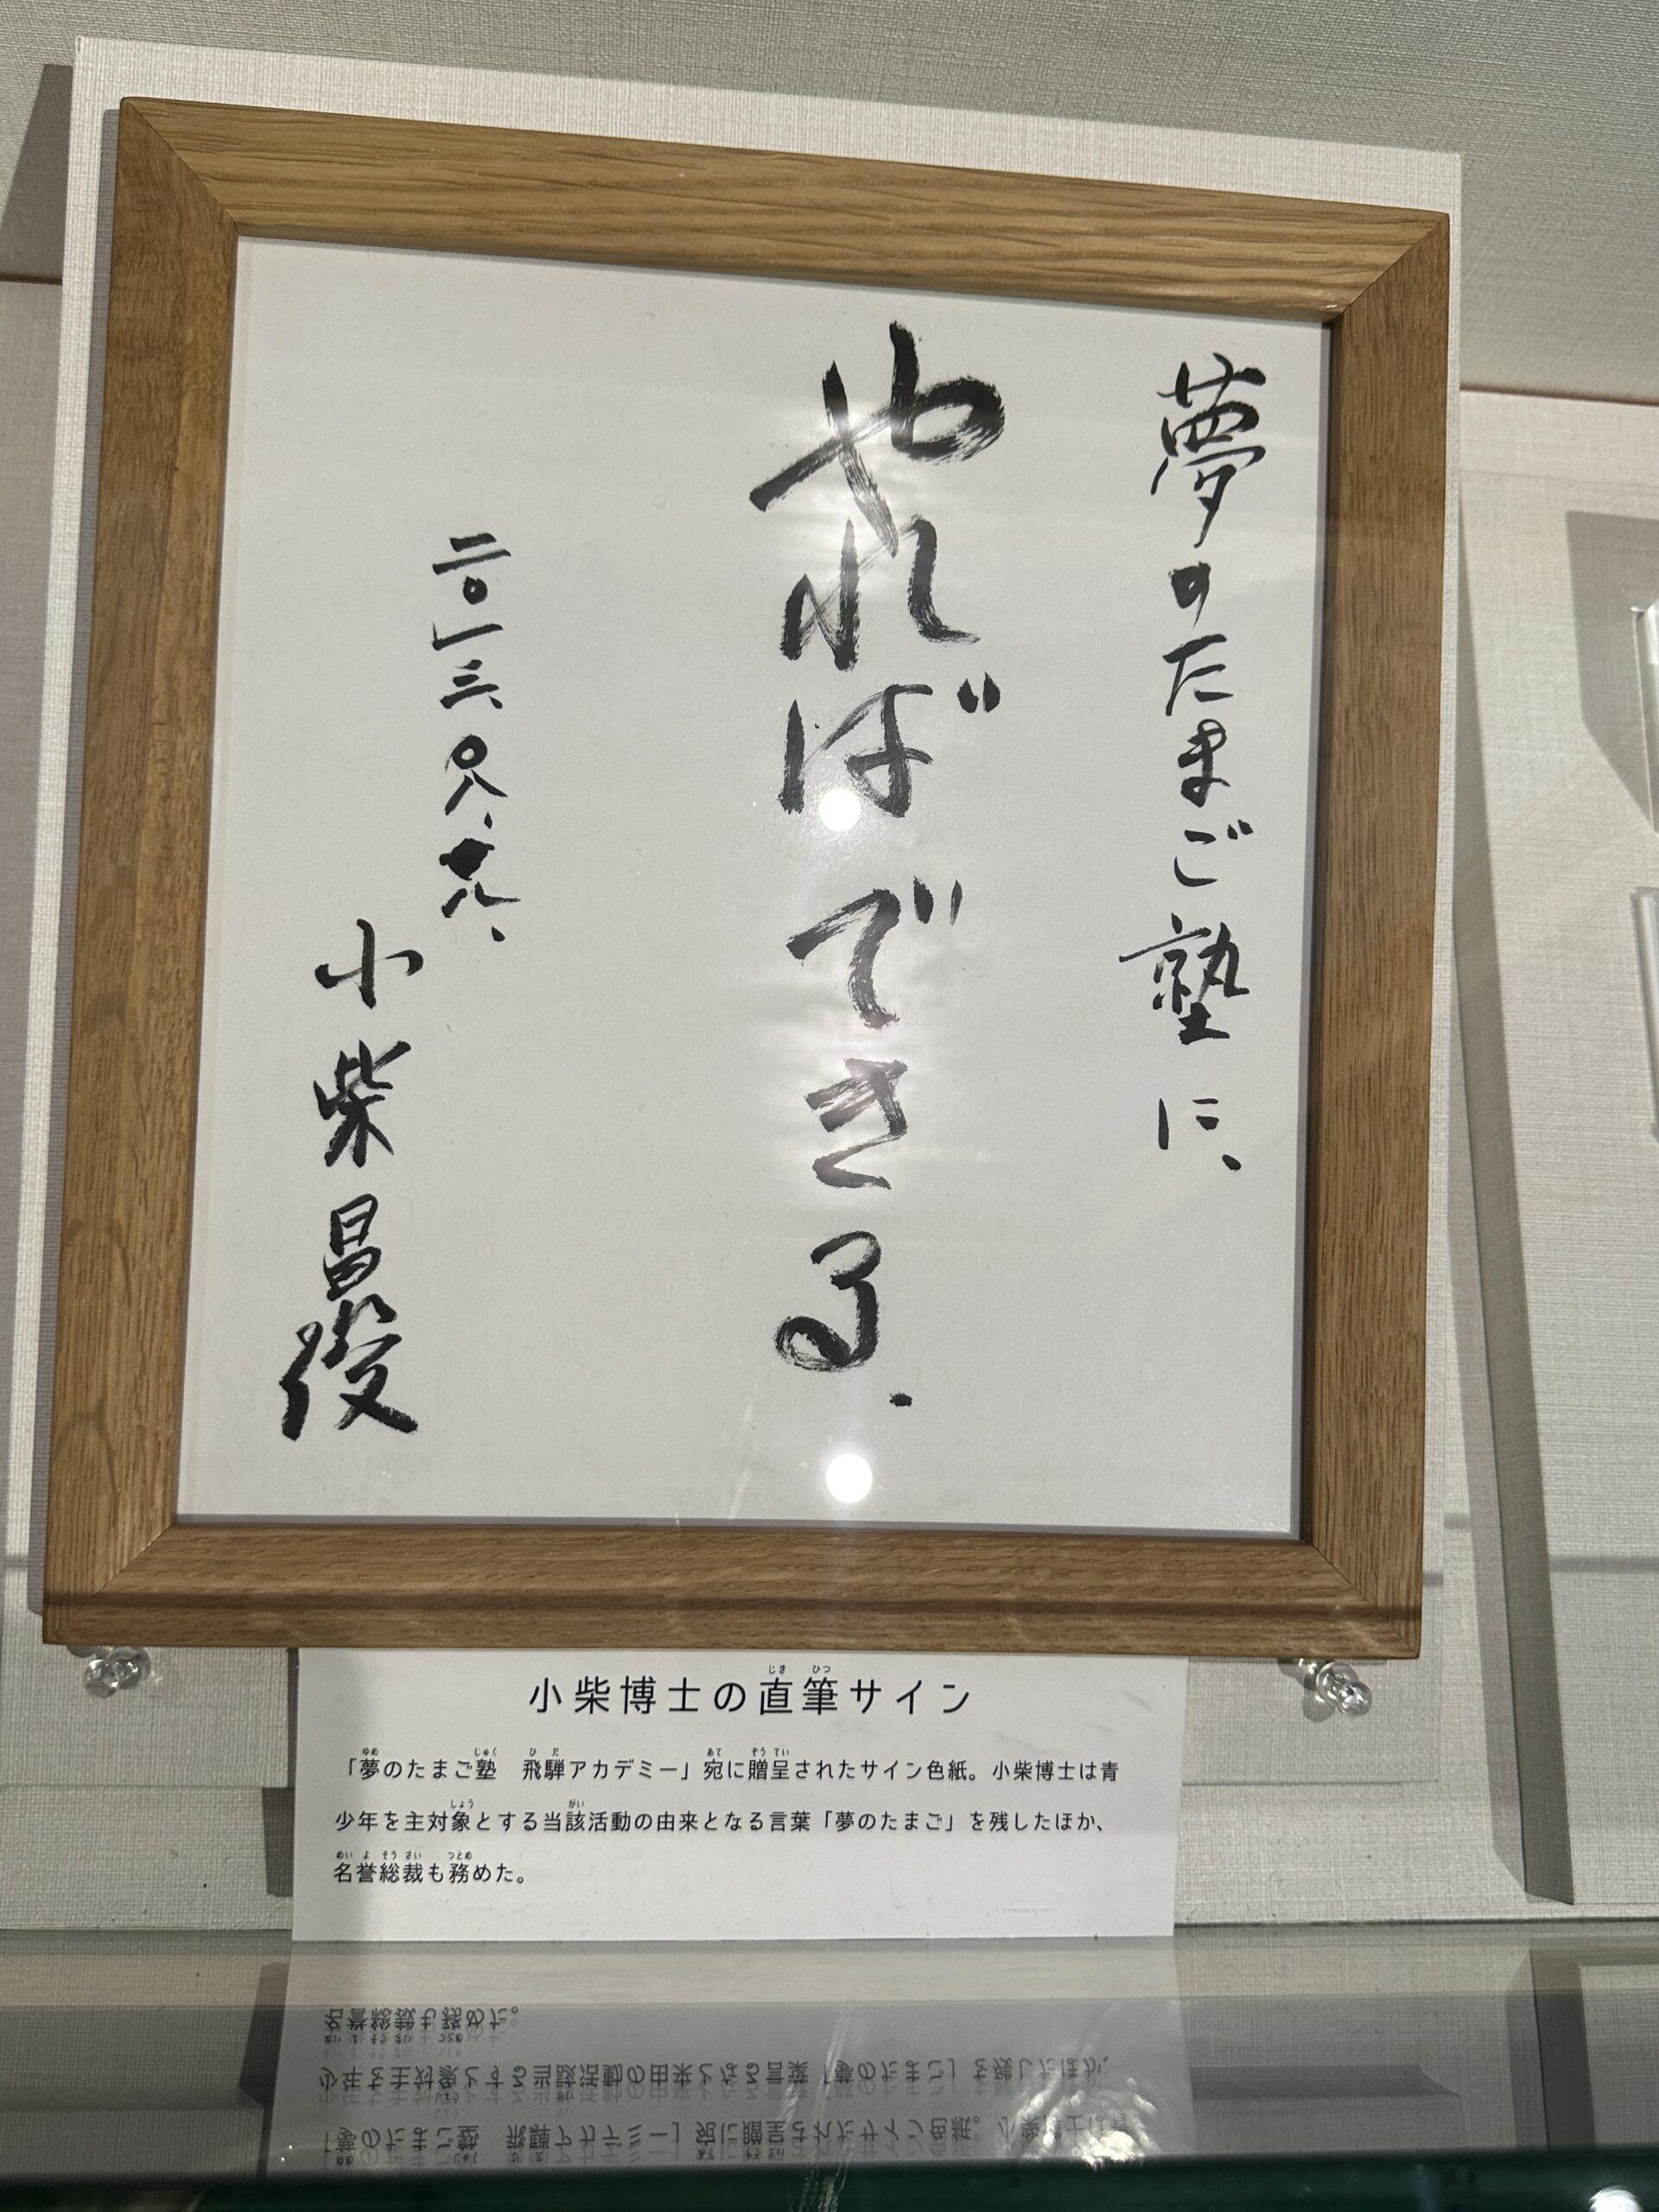 夢のたまご塾に、
やればできる.
二〇一三、〇八、
小柴昌俊
小柴博士の直筆サイン
「夢のたまご塾　飛騨アカデミー」宛に贈呈されたサイン色紙。小柴博士は青
少年を主対象とする当該活動の由来となる言葉「夢のたまご」を残したほか、
名誉総裁も務めた。